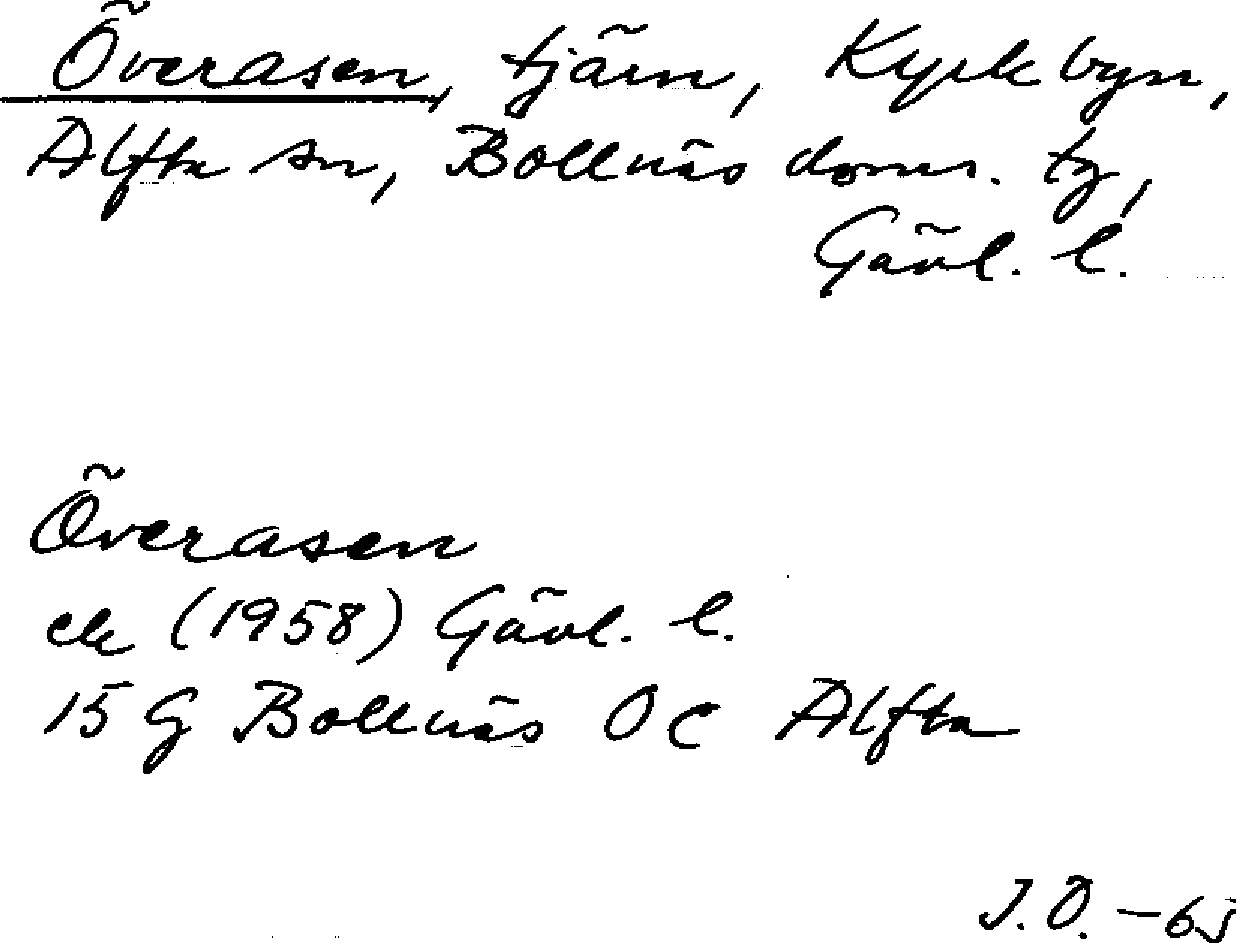 Överasen, tjärn, Kyrkbyn,
Alfta sn, Bollnäs doms. tg,
Gävl. l.
Överasen
ek (1958) Gävl. l.
15 G Bollnäs 0 c Alfta
J.Ö. -65